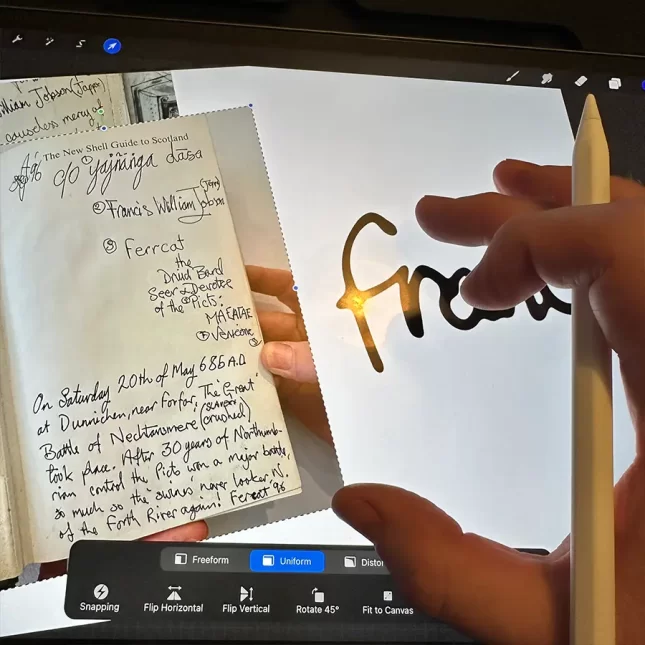 William Jobson (Jappy)
causeless mercy of
The New Shell Guide to Scotland
c/o yajnanga dasa
① Francis William Jobson
② Ferrcat
the
Druid Bard
Seer & Devotee
of the Picts:
MAEATAE
Venicone
On Saturday 20th of May 685 A.D
at Dunnichen, near Forfar, The 'Great'
Battle of Nechtansmere (crushed)
took place. After 30 years of Northumb-
rian control the Picts won a major battle,
so much so the 'swines' never looked N.
of the Forth River again! Ferrcat '96
fran
Freeform
Uniform
Distor
Snapping
Flip Horizontal
Flip Vertical
Rotate 45°
Fit to Canvas